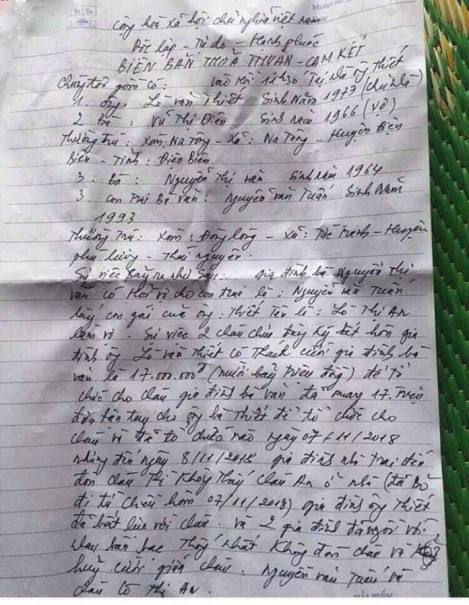 Cộng hoà Xã hội chủ nghĩa việt nam
Độc lập - Tự do - Hạnh phúc
BIÊN BẢN THOẢ THUẬN - CAM KẾT
Chúng tôi gồm có: vào hồi 14h30 Tại nhà ông Thiết
1. ông: Lò văn Thiết Sinh Năm 1973 (chủ hộ)
2 Bà: Vũ Thị Diên Sinh năm 1966 (vợ)
Thường trú: Xóm: Na Tông - Xã: Na Tông - Huyện Điện
Biên - Tỉnh: Điện Biên
3: Bà: Nguyễn Thị vân Sinh năm 1964
3. Con trai Bà vân: Nguyễn văn Tuấn Sinh Năm
1993
Thường Trú: Xóm: Đồng lòng - Xã: Tức Tranh - Huyện
phú lương - Thái nguyên.
Sự việc xảy ra như sau: gia đình bà Nguyễn Thị
vân có Hỏi vợ cho con trai là: Nguyễn văn Tuấn
lấy con gái của ông: Thiết Tên là: Lò Thị An
làm vợ. Sự việc 2 cháu chưa đăng ký kết hôn gia
đình ông Lò văn Thiết có Thách cưới gia đình bà
vân là 17.000.000đ (mười bảy triệu đồng) để tổ
chức cho cháu gia đình bà vân đã mang 17. triệu
đến tận tay cho ông bà Thiết để tổ chức cho
cháu và đã tổ chức vào ngày 07/11/2018
nhưng đến ngày 8/11/2018 gia đình nhà trai đến
đón dâu Thì không Thấy cháu An ở nhà (đã Bỏ
đi từ chiều hôm 07/11/2018) gia đình ông Thiết
đã bắt liên với cháu. và 2 gia đình đã ngồi với
nhau bàn bạc Thống Nhất Không đón cháu về
huỷ cưới giữa cháu: Nguyễn văn Tuấn và
cháu Lò Thị An.